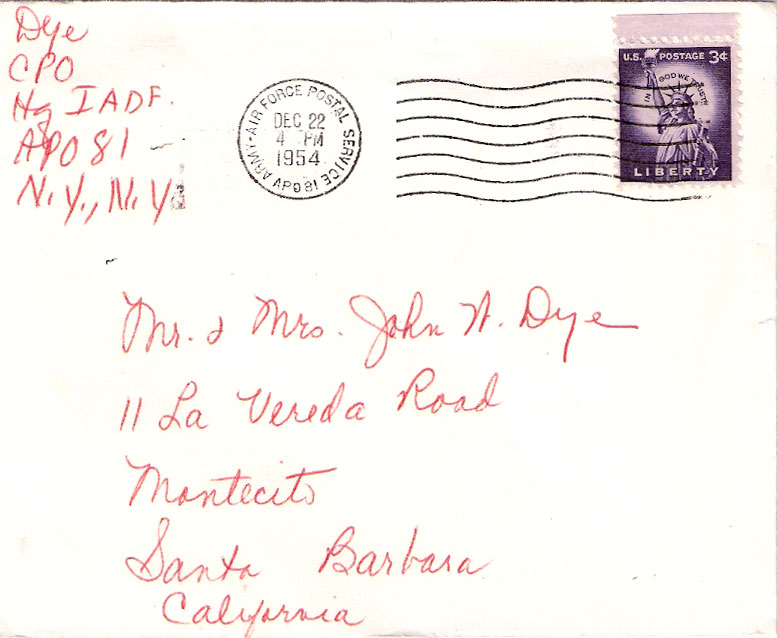 Dye
CPO
Hq IADF.
APO 81
N.Y., N.Y
ARMY-AIR FORCE POSTAL SERVICE
DEC 22
4 PM
1954
APO 81
U.S. POSTAGE 3¢
IN GOD WE TRUST
LIBERTY
Mr. & Mrs. John W. Dye
11 La Vereda Road
Montecito
Santa Barbara
California